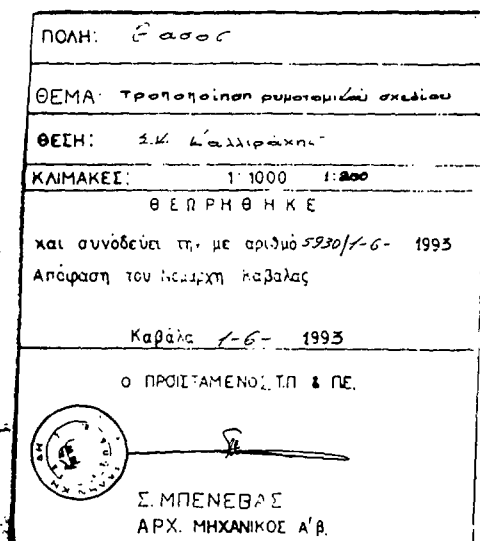 ΠΟΛΗ: Θασος
ΘΕΜΑ: Τροποποίηση ρυμοτομικού σχεδίου
ΘΕΣΗ: Σ.Κ. Καλλιράχης
ΚΛΙΜΑΚΕΣ: 1:1000 1:200
ΘΕΩΡΗΘΗΚΕ
και συνοδεύει την με αριθμό 5930/1-6- 1993
Απόφαση του Νομάρχη Καβάλας
Καβάλα 1-6- 1993
Ο ΠΡΟΙΣΤΑΜΕΝΟΣ Τ.Π & ΠΕ.
Σ. ΜΠΕΝΕΒΑΣ
ΑΡΧ. ΜΗΧΑΝΙΚΟΣ Α'β.